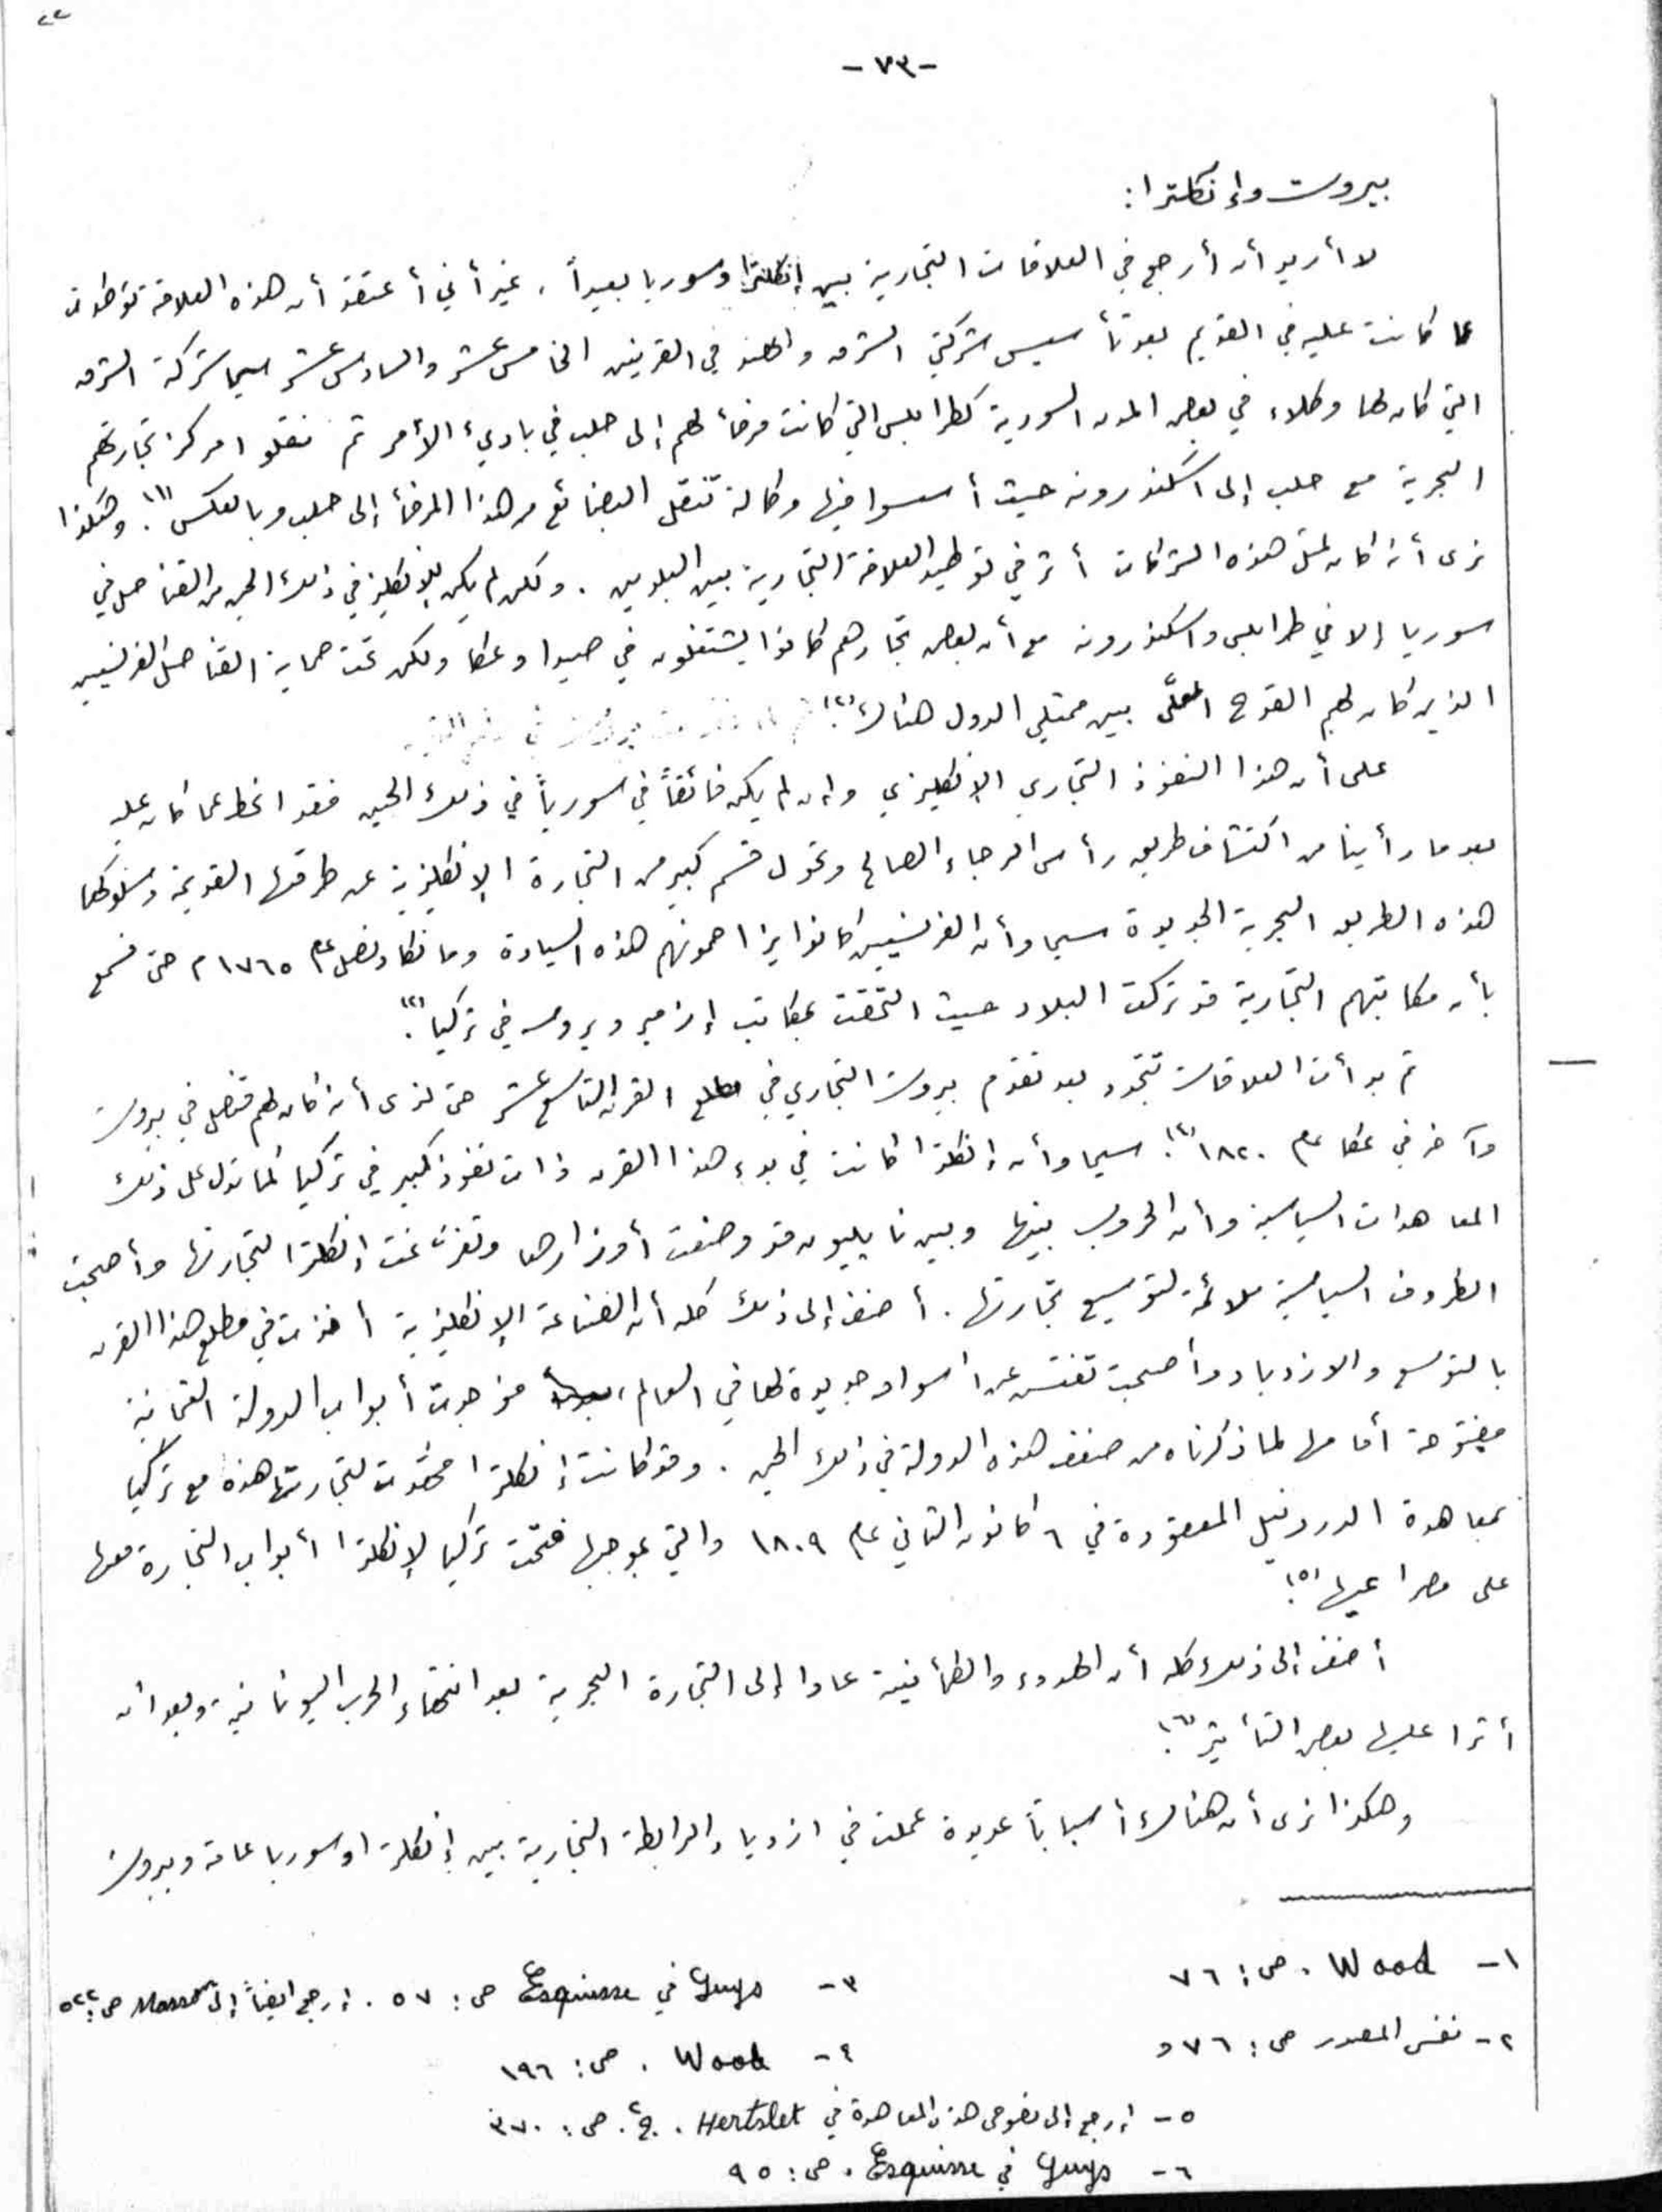 -٧٣-
بيروت وإنكلترا:
لا أريد أن أرجع في العلاقات التجارية بين إنكلترا وسوريا بعيداً، غير أني أعتقد أن هذه العلاقة توطدت
عما كانت عليه في القديم بعد تأسيس شركتي الشرق والهند في القرنين الخامس عشر والسادس عشر سيما شركة الشرق
التي كان لها وكلاء في بعض المدن السورية كطرابلس التي كانت مرفأ لهم إلى حلب في بادئ الأمر ثم نقلوا مركز تجارتهم
البحرية مع حلب إلى اسكندرونه حيث أسسوا فيها وكالة تنقل البضائع من هذا المرفأ إلى حلب وبالعكس (١). وهكذا
نرى أنه كان لمثل هذه الشركات أثر في توطيد العلاقة التجارية بين البلدين. ولكن لم يكن للإنكليز في ذلك الحين من القناصل في
سوريا إلا في طرابلس واسكندرونه مع أن بعض تجارهم كانوا يشتغلون في صيدا وعكا ولكن تحت حماية القناصل الفرنسيين
الذين كان لهم القدح المعلّى بين ممثلي الدول هناك (٢).
على أن هذا النفوذ التجاري الإنكليزي وإن لم يكن فائقاً في سورياً في ذلك الحين فقد انحط عما كان عليه
بعد ما رأينا من اكتشاف طريق رأس الرجاء الصالح وتحول قسم كبير من التجارة الإنكليزية عن طرقها القديمة وسلوكها
هذه الطريق البحرية الجديدة سيما وأن الفرنسيين كانوا يزاحمونهم هذه السيادة وما نكاد نصل عام ١٧٦٥م حتى نسمع
بأن مكاتبهم التجارية قد تركت البلاد حيث التحقت بمكاتب إزمير وبروسه في تركيا (٣).
ثم بدأت العلاقات تتجدد بعد تقدم بيروت التجاري في مطلع القرن التاسع عشر حتى لنرى أنه كان لهم قنصل في بيروت
وآخر في عكا عام ١٨٢٠ (٤). سيما وأن إنكلترا كانت في بدء هذا القرن ذات نفوذ كبير في تركيا كما تدل على ذلك
المعاهدات السياسية وأن الحروب بينها وبين نابليون قد وضعت أوزارها وتفرغت إنكلترا لتجارتها وأصبحت
الظروف السياسية ملائمة لتوسيع تجارتها. أضف إلى ذلك كله أن الصناعة الإنكليزية أخذت في مطلع هذا القرن
بالتوسع والازدياد وأصبحت تفتش عن أسواق جديدة لها في العالم، فوجدت أبواب الدولة العثمانية
مفتوحة أمامها لما ذكرناه من ضعف هذه الدولة في ذلك الحين. وقد كانت إنكلترا مهّدت لتجارتها هذه مع تركيا
بمعاهدة الدردنيل المعقودة في ٦ كانون الثاني عام ١٨٠٩ والتي بموجبها فتحت تركيا لإنكلترا أبواب التجارة معها
على مصراعيها (٥).
أضف إلى ذلك كله أن الهدوء والطمأنينة عادا إلى التجارة البحرية بعد انتهاء الحرب اليونانية وبعد أن
أثرا عليها بعض التأثير (٦).
وهكذا نرى أن هناك أسباباً عديدة عملت في ازدياد الرابطة التجارية بين إنكلترا وسوريا عامة وبيروت
١- Wood. ص: ٧٦
٢- نفس المصدر ص: ٧٦
٣- Guys في Esquisse ص: ٥٧. إرجع ايضاً إلى Masson ص: ٥٢٢
٤- Wood. ص: ١٩٦
٥- إرجع إلى نصوص هذه المعاهدة في Hertslet. ج٢. ص: ٣٧٠
٦- Guys في Esquisse. ص: ٩٥